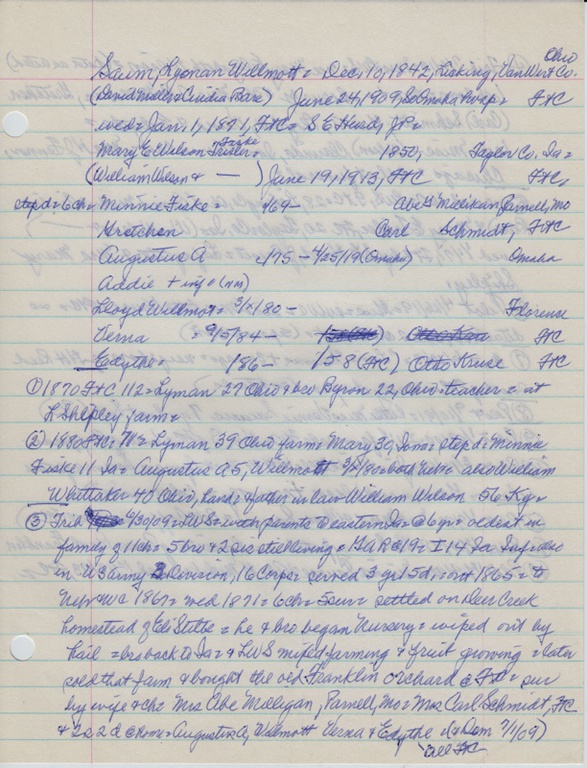 Ohio
Saum, Lyman Willmott = Dec, 10, 1842, Licking, Van Wert Co.
(David Miller = Cecilia Bare) June 24, 1909, So Omaha Hosp = FtC
wed = Jan 1, 1871, FtC = S E Heard, JP =
Mary E Wilson Fiske = 1850, Taylor Co. Ia =
(William Wilson & — ) June 19, 1913, FtC FtC,
step d = 6 ch = Minnie Fiske = '69 - Abe G Millikan, Parnell, Mo
Gretchen Carl Schmidt, FtC
Augustus A c/75 - 4/25/19 (Omaha) Omaha
Addie + inf (nm)
Lloyd Willmot = 3/x180 - Florence
Verna = 9/5/84 - FtC
Eadythe = /86 - /58 (FtC) Otto Kruse FtC
① 1870 FtC 112 = Lyman 27 Ohio & bro Byron 22, Ohio = teacher = at
L Shipley farm =
② 1880 FtC = Lyman 39 Ohio farm = Mary 30, Iowa = step d = Minnie
Fiske 11 Ia = Augustus A 5, Willmott 3/x180 = both Nebr = also William
Whittaker 40 Ohio, hand & father in law William Wilson 56 Ky =
③ Trib 6/30/09 = LWS = with parents to eastern Ia = @ 6 yr = oldest in
family of 11 ch = 5 bro & 2 sis still living = GAR @ 19 = I 14 Ia Inf = also
in US Army Division, 16 Corps = served 3 yr 15d, out 1865 = to
Nebr WC 1867 = wed 1871 = 6 ch = 5 sur = settled on Deer Creek
homestead of Ed Stilts = he & bro began Nursery = wiped out by
hail = bro back to Ia = & LWS mixed farming & fruit growing = later
sold that farm & bought the old Franklin orchard @ Ft = sur
by wife & ch = Mrs Abe Milligan, Parnell, Mo = Mrs Carl Schmidt, FtC
& 2 s 2 d @ home = Augustus A, Willmott Verna & Edythe (& Dem 7/1/09)
all FtC